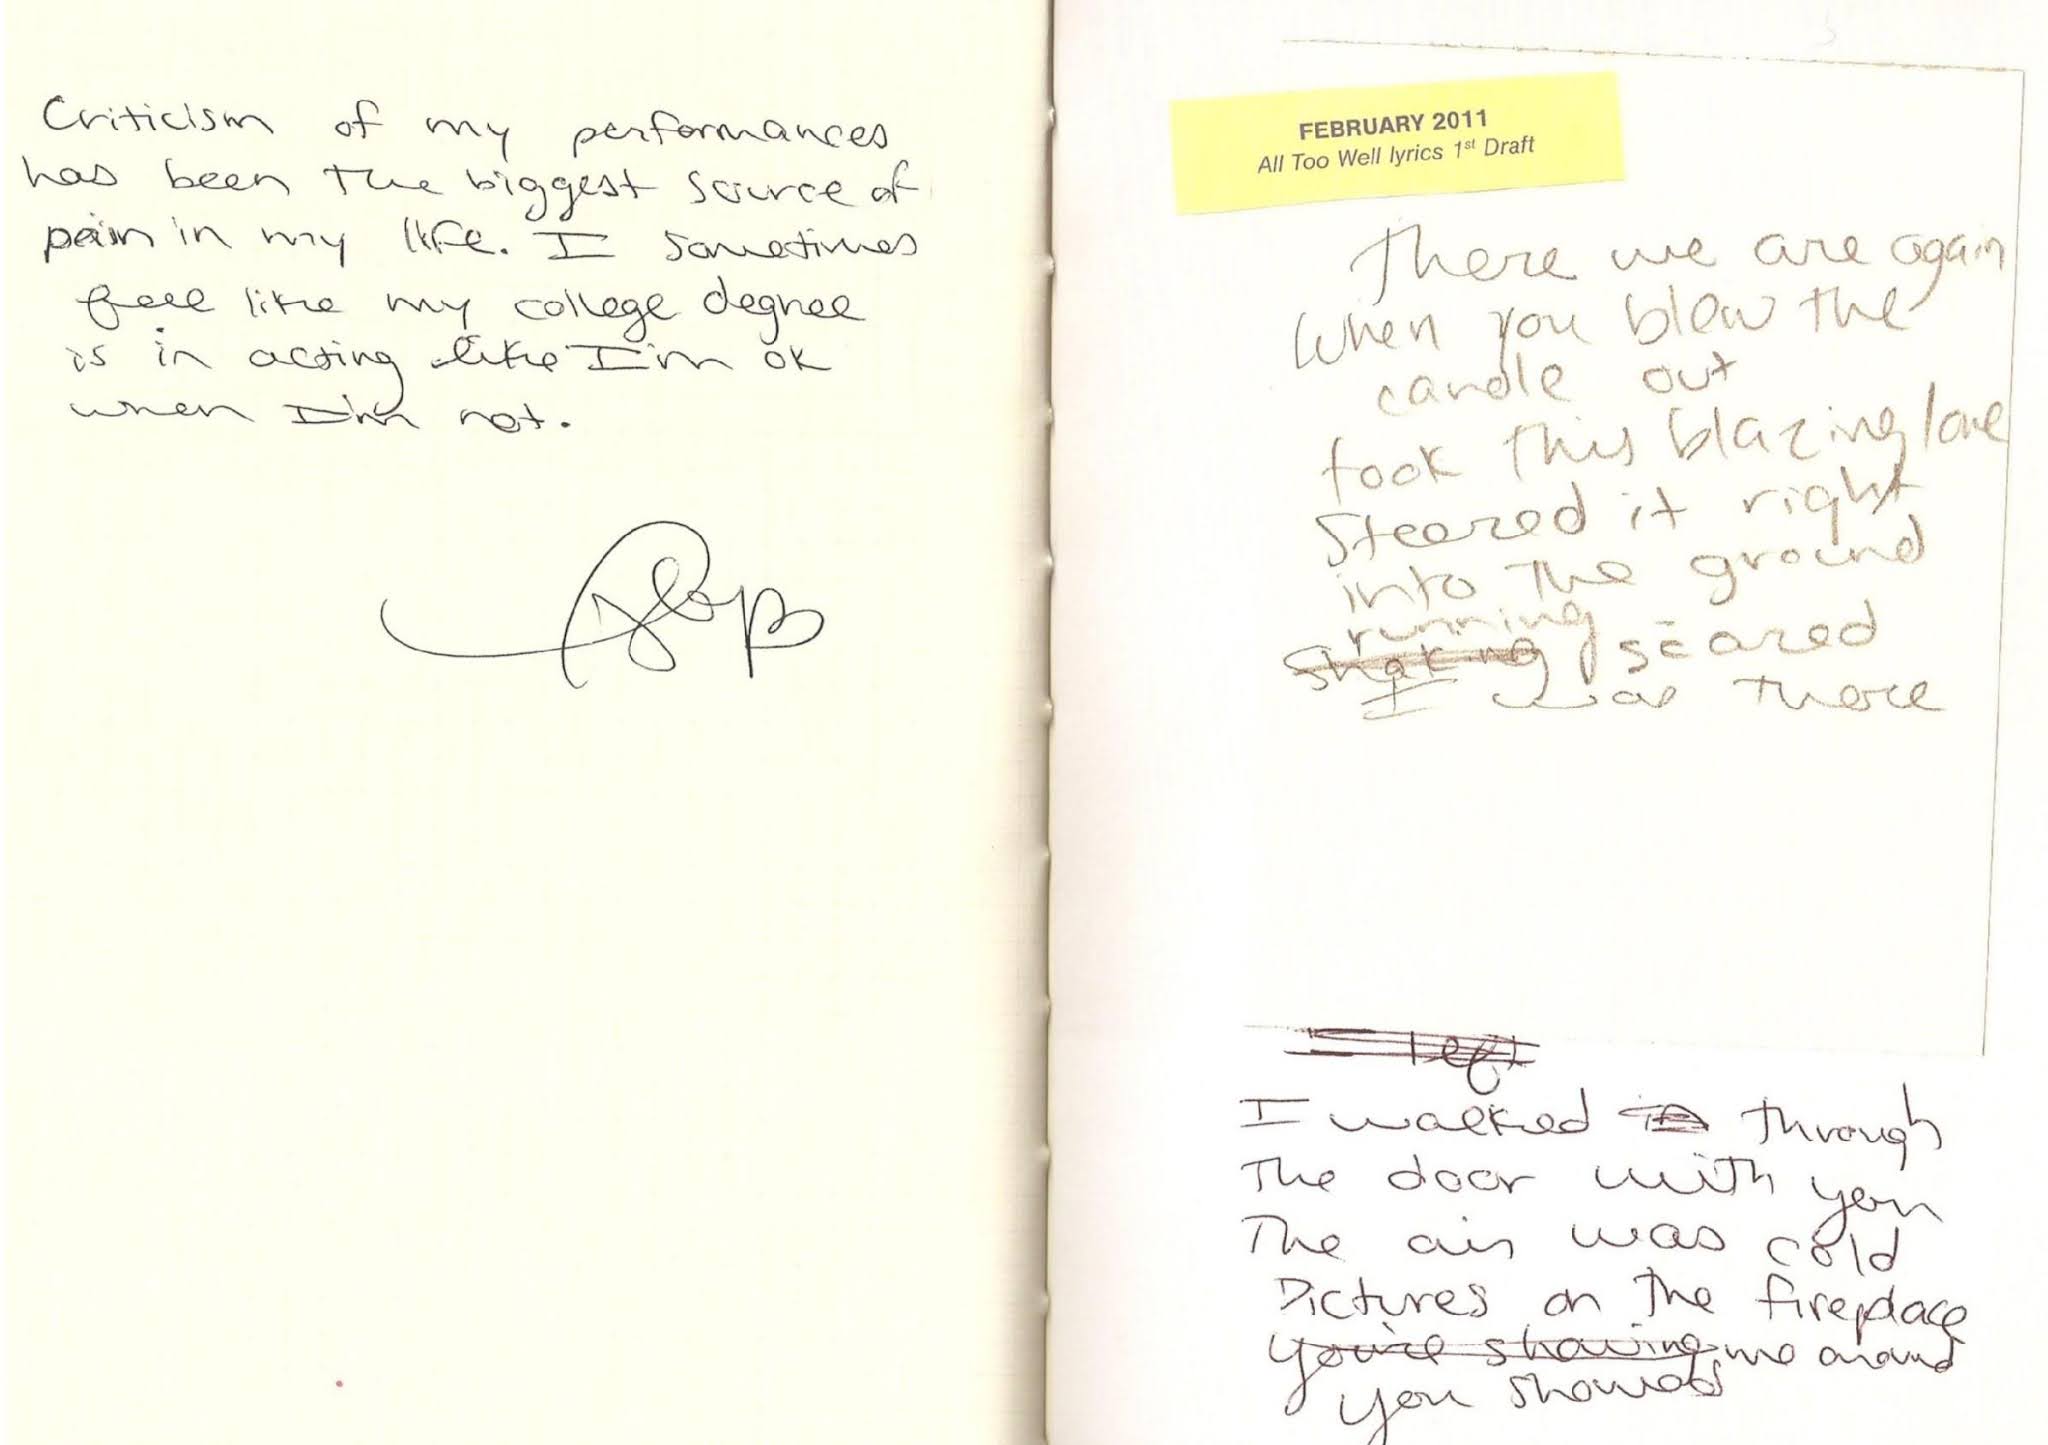 Criticism of my performances
has been the biggest source of
pain in my life. I sometimes
feel like my college degree
is in acting like I'm ok
when I'm not.
FEBRUARY 2011
All Too Well lyrics 1st Draft
There we are again
When you blew the
candle out
took this blazing love
Steered it right
into the ground
running
shaking scared
I was there
left
I walked in through
The door with you
The air was cold
Pictures on the fireplace
you're showing me around
you showed